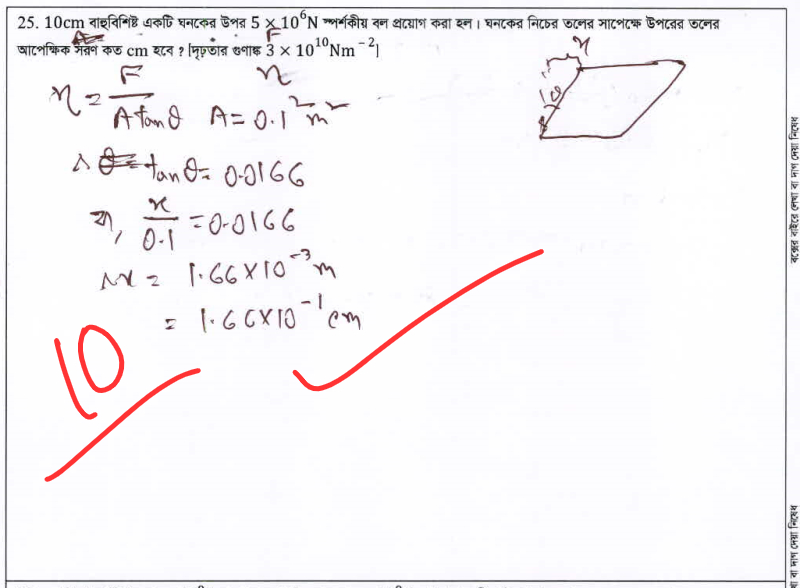 25. 10cm বাহুবিশিষ্ট একটি ঘনকের উপর 5 × 10⁶N স্পর্শকীয় বল প্রয়োগ করা হল। ঘনকের নিচের তলের সাপেক্ষে উপরের তলের
আপেক্ষিক সরণ কত cm হবে ? [দৃঢ়তার গুণাঙ্ক 3 × 10¹⁰Nm⁻²]
F
x
η = F / A tanθ A = 0.1² m²
tanθ = 0.0166
বা, x / 0.1 = 0.0166
x = 1.66×10⁻³ m
= 1.66×10⁻¹ cm
x
θ
10
বক্সের বাইরে লেখা বা দাগ দেয়া নিষেধ
বা দাগ দেয়া নিষেধ